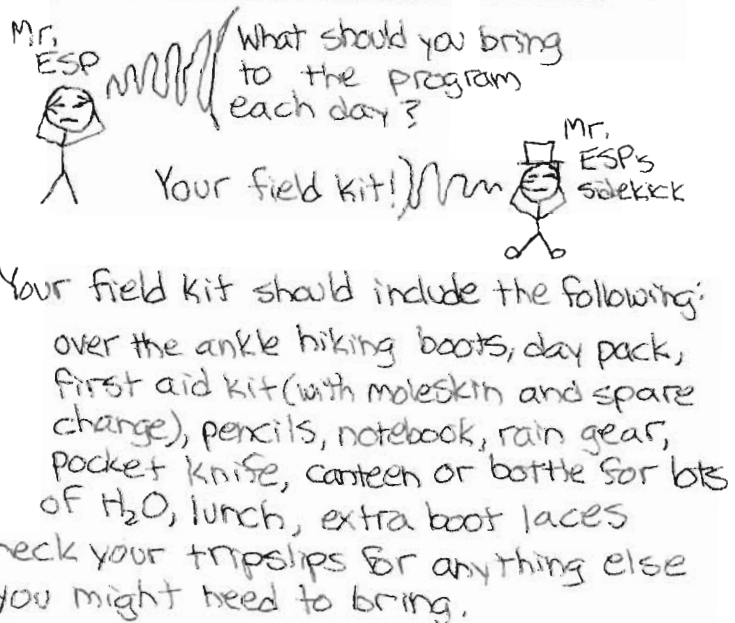 Mr.
ESP
What should you bring
to the program
each day?
Mr.
ESP's
sidekick
Your field kit!
Your field kit should include the following:
over the ankle hiking boots, day pack,
first aid kit (with moleskin and spare
change), pencils, notebook, rain gear,
pocket knife, canteen or bottle for lots
of H₂O, lunch, extra boot laces
heck your tripslips for anything else
you might need to bring.